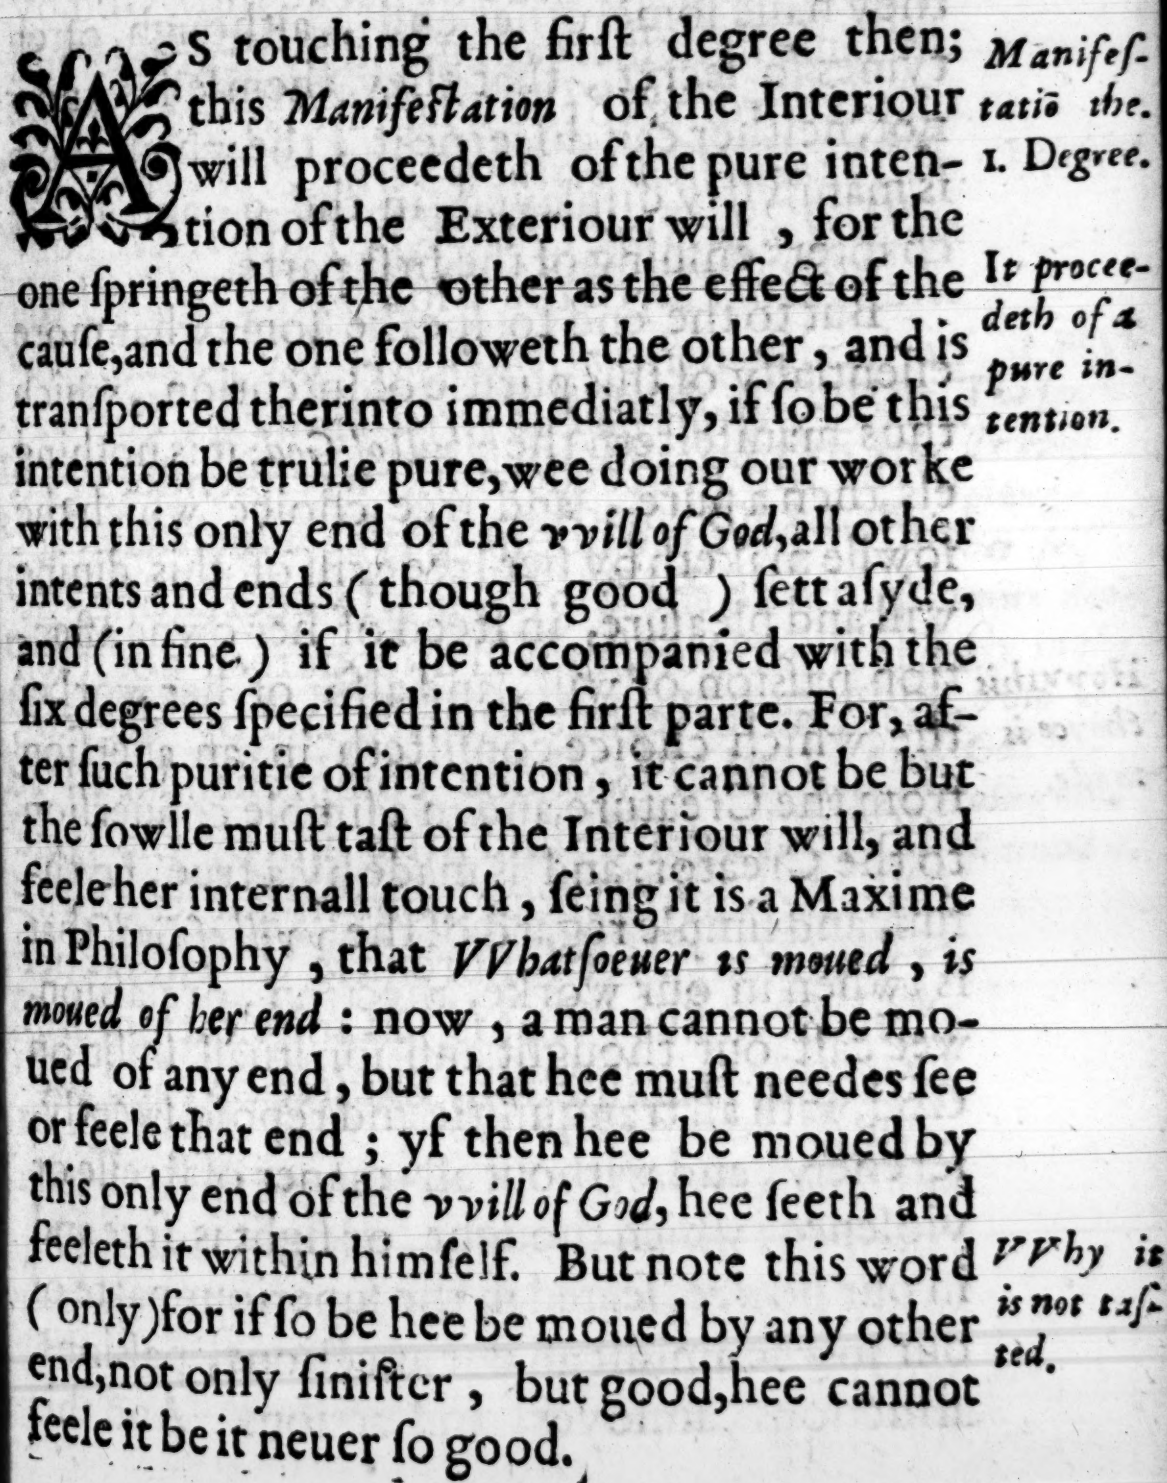 AS touching the firſt degree then;
this Manifeſtation of the Interiour
will proceedeth of the pure inten-
tion of the Exteriour will , for the
one ſpringeth of the other as the effect of the
cauſe,and the one followeth the other , and is
tranſported therinto immediatly, if ſo be this
intention be trulie pure,wee doing our worke
with this only end of the vvill of God,all other
intents and ends ( though good ) ſett aſyde,
and (in fine ) if it be accompanied with the
ſix degrees ſpecified in the firſt parte. For, af-
ter ſuch puritie of intention , it cannot be but
the ſowlle muſt taſt of the Interiour will, and
feele her internall touch , ſeing it is a Maxime
in Philoſophy , that VVhatſoeuer is moued , is
moued of her end : now , a man cannot be mo-
ued of any end , but that hee muſt needes ſee
or feele that end ; yf then hee be moued by
this only end of the vvill of God, hee ſeeth and
feeleth it within himſelf. But note this word
( only)for if ſo be hee be moued by any other
end,not only ſiniſter , but good,hee cannot
feele it be it neuer ſo good.
Manifeſ-
tatiō the.
1. Degree.
It procee-
deth of a
pure in-
tention.
VVhy it
is not taſ-
ted.